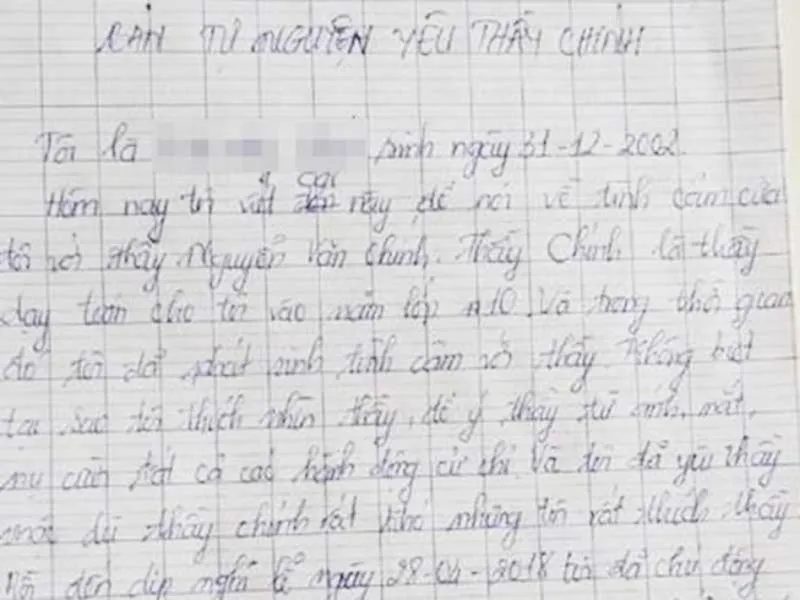 BẢN TỰ NGUYỆN YÊU THẦY CHINH
Tôi là sinh ngày 31-12-2002
Hôm nay tôi viết này để nói về tình cảm của
tôi với thầy Nguyễn Văn Chinh. Thầy Chinh là thầy
dạy toán cho tôi vào năm lớp 10. Và trong thời gian
đó tôi đã phát sinh tình cảm với thầy. Không biết
tại sao tôi thích nhìn thầy, để ý thầy từ ánh mắt,
nụ cười tất cả các hành động cử chỉ. Và tôi đã yêu thầy
mặc dù thầy chinh rất khó nhưng tôi rất thích thầy
rồi đến dịp nghỉ lễ ngày 28-04-2018 tôi đã chủ động